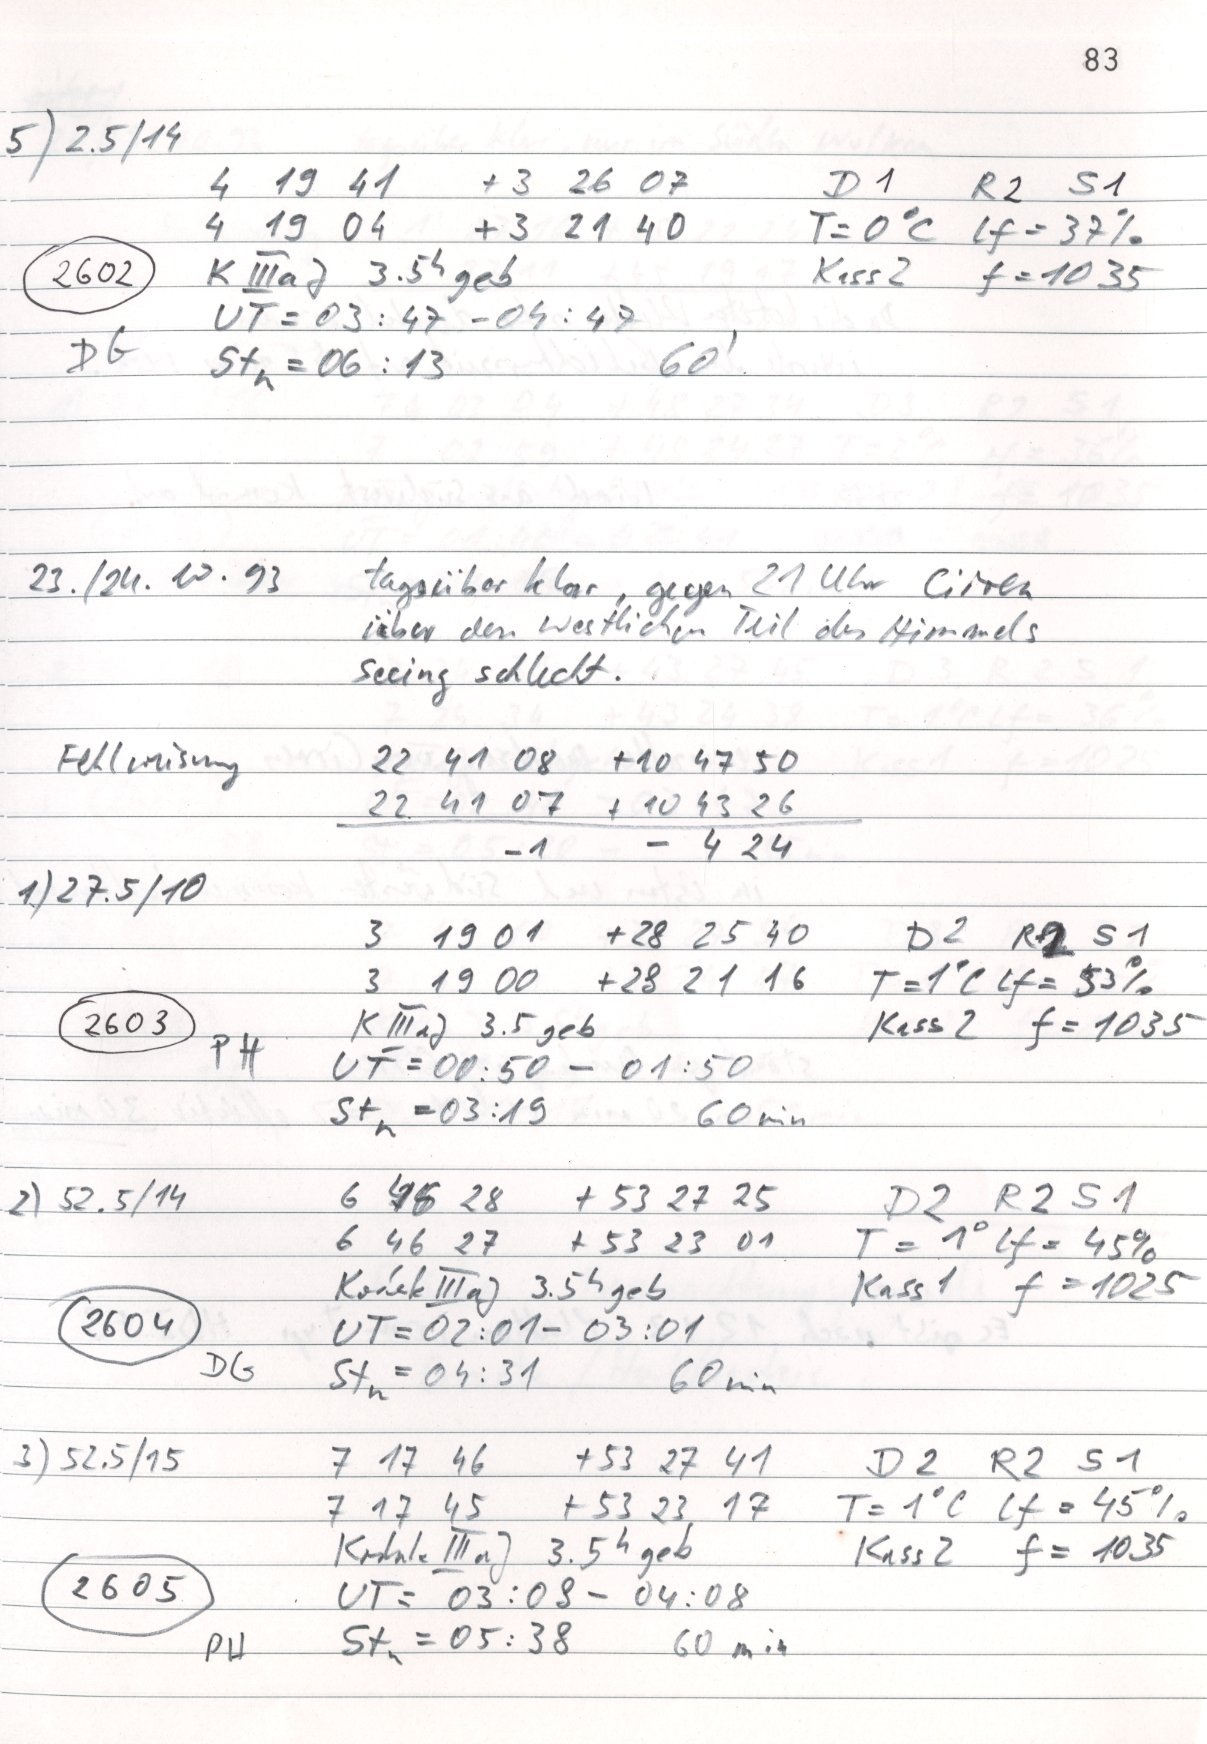 83
5) 2.5/14
4 19 41 +3 26 07 D1 R2 S1
4 19 04 +3 21 40 T=0°C Lf=37%
2602 K IIIaJ 3.5h geb Kass2 f=1035
UT=03:47-04:47
DG Stn=06:13 60'
23./24.10.93 tagsüber klar, gegen 21 Uhr Cirren
über den westlichen Teil des Himmels
Seeing schlecht.
Fehlweisung 22 41 08 +10 47 50
22 41 07 +10 43 26
-1 - 4 24
1) 27.5/10
3 19 01 +28 25 40 D2 R2 S1
3 19 00 +28 21 16 T=1°C Lf=53%
2603 K IIIaJ 3.5 geb Kass2 f=1035
PH UT=00:50 - 01:50
Stn=03:19 60min
2) 52.5/14 6 46 28 +53 27 25 D2 R2 S1
6 46 27 +53 23 01 T=1° Lf=45%
Kodak IIIaJ 3.5h geb Kass1 f=1025
2604 UT=02:01-03:01
DG Stn=04:31 60min
3) 52.5/15 7 17 46 +53 27 41 D2 R2 S1
7 17 45 +53 23 17 T=1°C Lf=45%
Kodak IIIaJ 3.5h geb Kass2 f=1035
2605 UT= 03:08-04:08
PH Stn=05:38 60 min